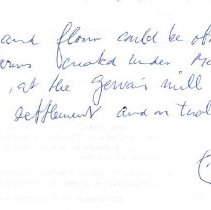 and flour could be ob
created under Me
, at the Gervais mill
settlement and on